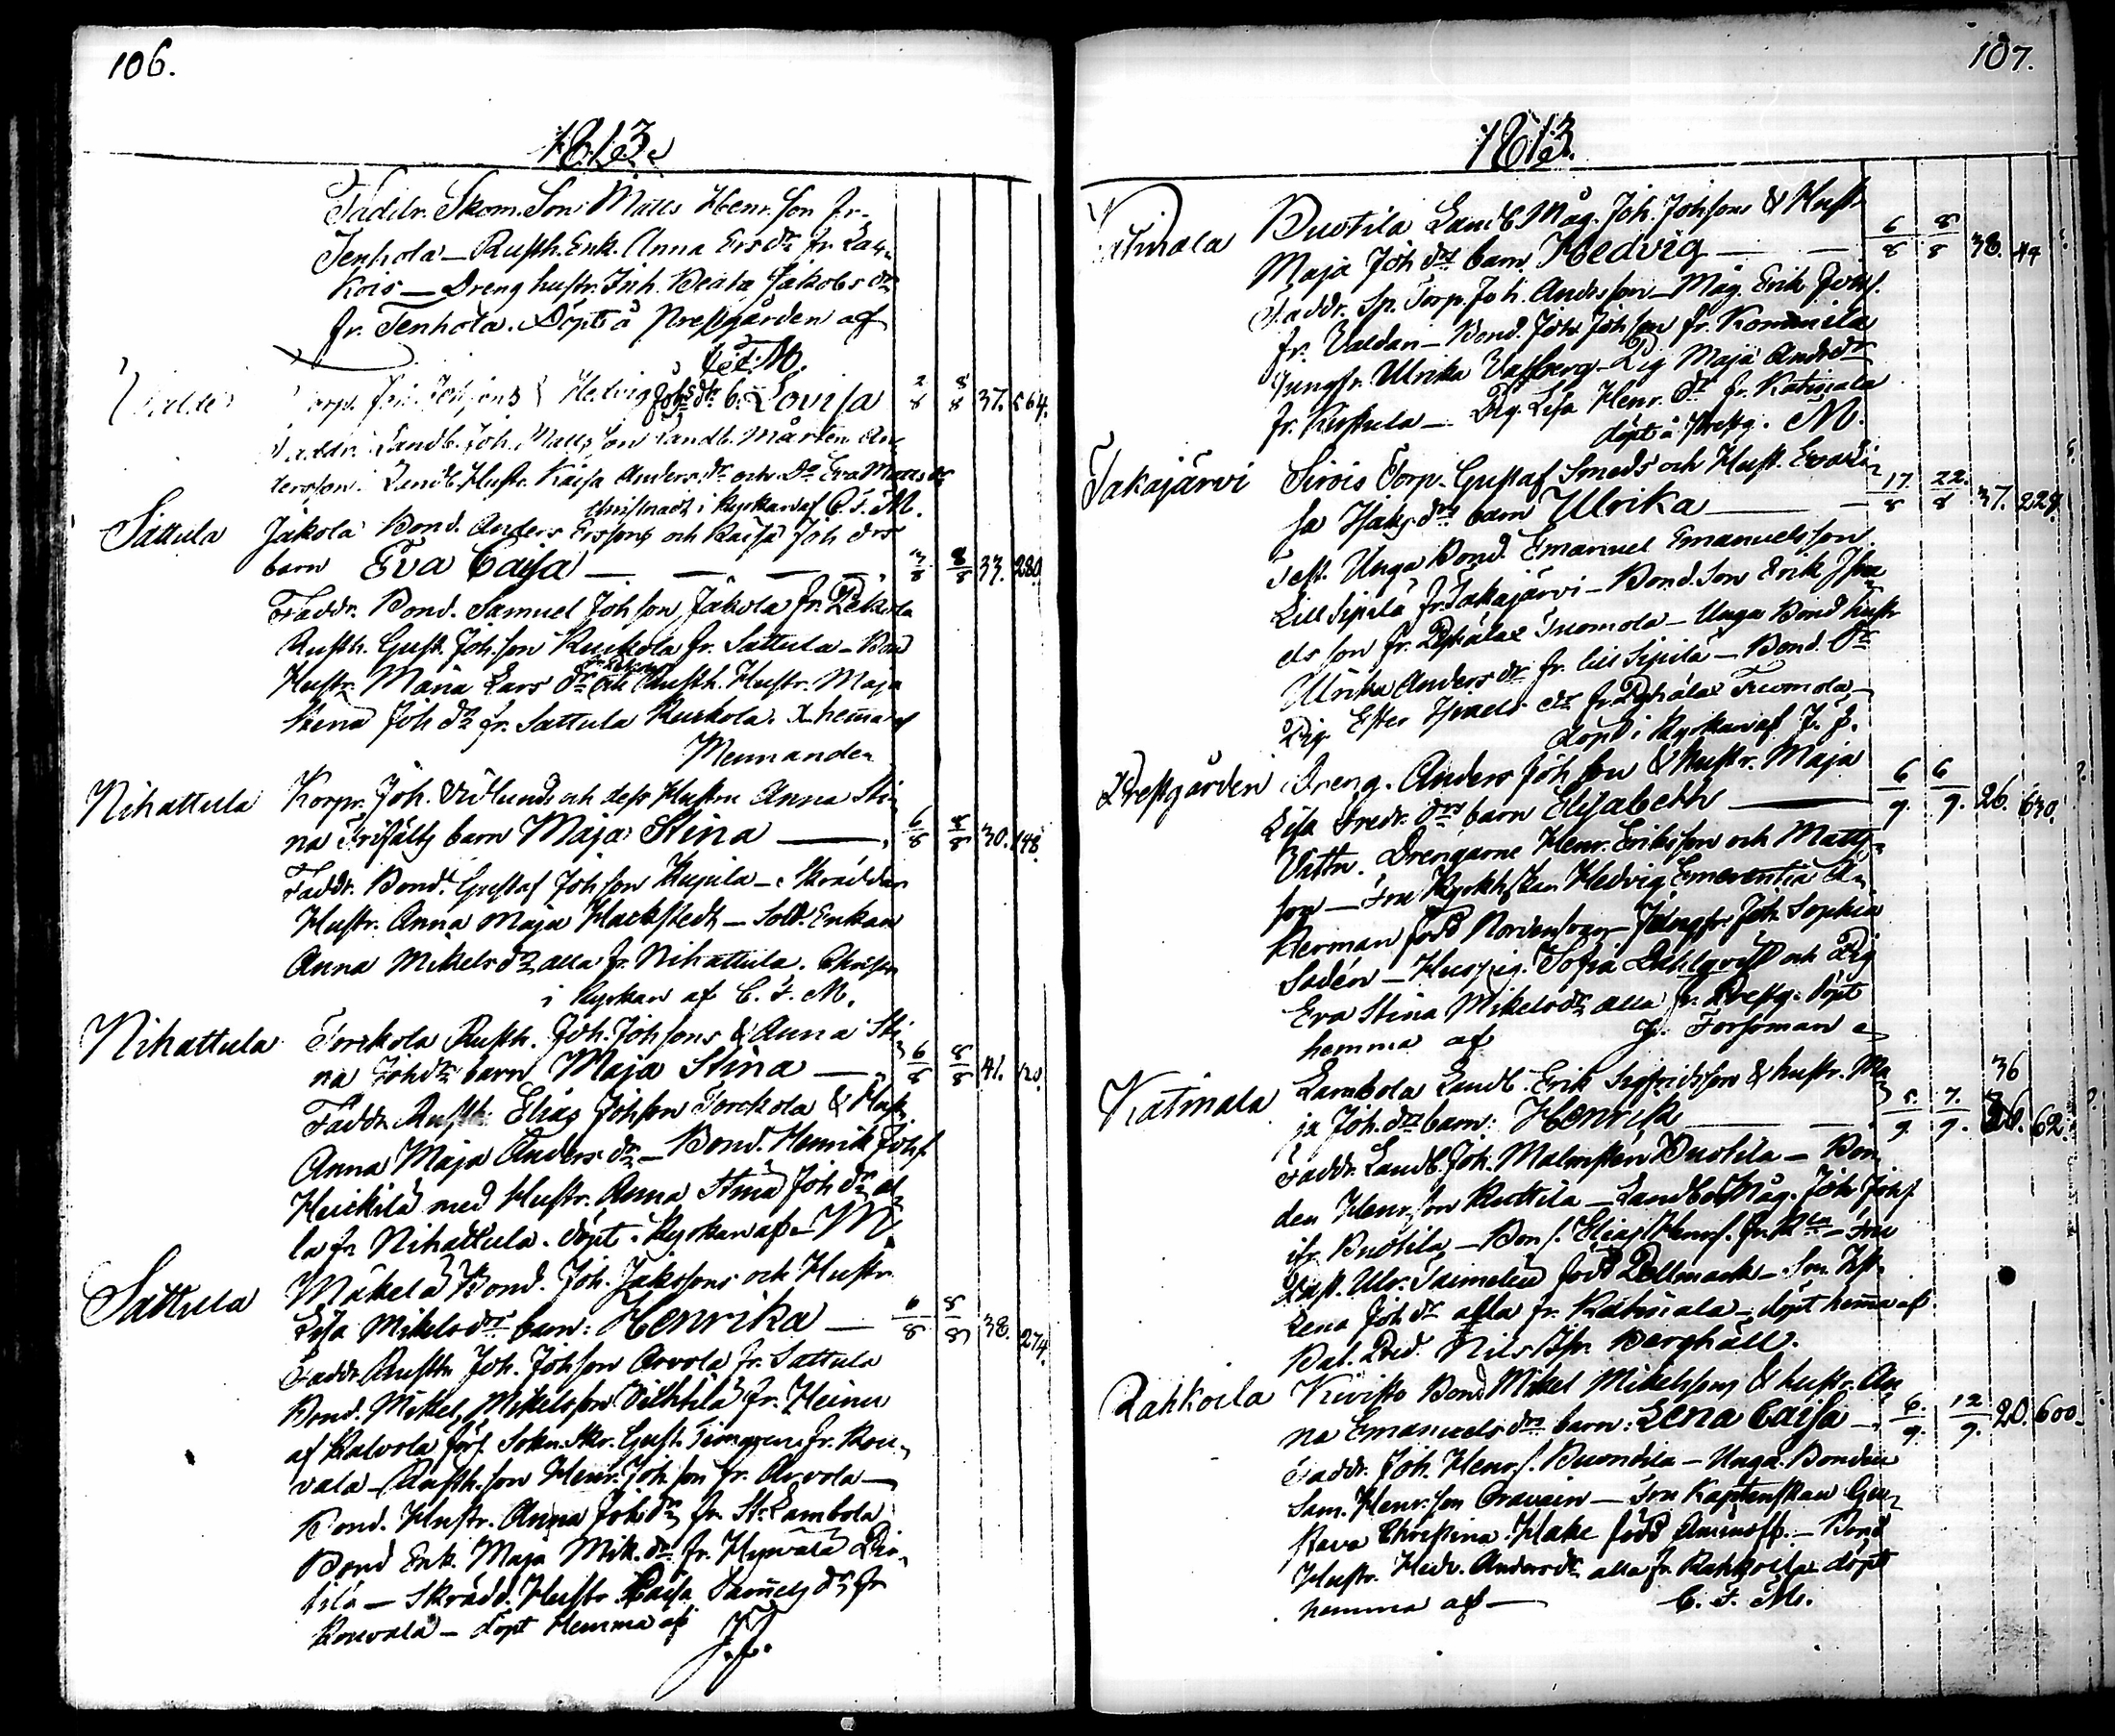 106.
1813.
Faddr. Skom. Son Matts Henr. Son fr.
Tenhola — Rusth. Enk. Anna Ersdr fr. Lau,
kois — Dreng hustr. Joh. Beata Jakobs dr
fr. Tenhola. Döpt å Prestgården af
C. F. M.
Hedvig Joh dr b. Lovisa 2/8 8/8 37. 264.
Faddr. Landb. Joh. Matts Son Landb. Mårten An,
dersson. Landb. Hustr. Kaisa Anders dr och Do Eva Matts dr
Christnadt i Kyrkan af C. F. M.
Sattula Jakola Bond. Anders Erssons och Kaisa Joh drs
barn Eva Caisa — — — — 3/8 8/8 33. 280.
Faddr. Bond. Samuel Joh son Jakola fr. Pekola
Rusth. Gust. Joh. son Ruskola fr. Sattula — Bond
Hustr. Maria Lars dr och Rusth. Hustr. Maja
Lena Joh dr fr. Sattula Ruskola. X hemma af
Neumander
Nihattula Korpr. Joh. Vidlunds och dess Hustru Anna Sti,
na Frisälts barn Maja Stina — 6/8 8/8 30. 148.
Faddr. Bond. Gustaf Joh son Kujula — Skräddar
Hustr. Anna Maja Hackstedt — Sold. Enkan
Anna Mikels dr alla fr. Nihattula. Christn
i Kyrkan af C. F. M.
Nihattula Torckola Rusth. Joh. Joh sons & Anna Sti,
na Joh dr barn Maja Stina — 6/8 8/8 41. 120.
Faddr. Rusth. Elias Joh son Torckola & Hustr.
Anna Maja Anders dr — Bond. Henrik Joh s.
Heickilä med Hustr. Anna Stina Joh dr al,
la fr. Nihattula. döpt i Kyrkan af — M.
Sattula Mäkelä Bond. Joh. Jakssons och Hustr.
Lisa Mikels drs barn: Henrika — 6/8 8/8 38. 274.
Faddr. Rusth. Joh. Joh son Arvola fr. Sattula
Bond. Mikel Mikelsson fr. Heinu
af Kalvola förs. Sokn. Skr. Gust. fr. Rou,
vala — Rusth. son Henr. Joh son fr. Arvola —
Bond. Hustr. Anna Joh dr fr. St. Lambola
Bond Enk. Maja Mik. dr fr. Hyrvälä Pir,
tilä — Skrädd. Hustr. Caisa Samuels dr fr.
Rouvala — döpt Hemma af
J. J.
107.
1813.
Katinala Buotila Landb. Måg. Joh. Joh sons & Hustr
Maja Joh drs barn Hedvig — — 6/8 8/8 38. 44
Faddr. Sp. Torp. Joh. Andersson — Måg. Erik Joh s.
fr. Valdan — Bond. Joh. Joh son fr. Kommila
Jungfr. Ulrika Valberg — Pig Maja Anders dr
fr. Kirstula — Pig. Lisa Henr. dr fr. Katinala
döpt å Prestg. M.
Takajärvi Sirois Torp. Gustaf Smeds och Hust. Eva Li,
sa Isaks drs barn Ulrika — 17/8 22/8 37. 228.
Test. Unga Bond. Emanuel Emanuelsson
Lill Sipilä fr. Takajärvi — Bond. Son Erik Isra,
els son fr. Tuomola — Unga Bond hustr
Ulrika Anders dr fr. lill Sipilä — Bond. dr
Pig. Ester Israels dr fr. Tuomola —
döpt i Kyrkan af J. J.
Prestgården Dreng. Anders Joh son & Hustr. Maja
Lisa Fredr. drs barn Elisabeth — 6/9. 6/9. 26. 630.
Vittn. Drengarne Henr. Eriksson och Matts,
son — Fru Kyrkh.skan Hedvig Emerentia
född — Jungfr. Joh. Sophia
Sadén — Huspig. Sofia Dahlqvist och Pig
Eva Stina Mikels dr alla fr. Prestg. döpt
hemma af J. Forsoman
Katinala Lambola Landb. Erik Sigfridsson & hustr. Ma,
ja Joh. drs barn: Henrik — 5/9. 7/9. 36 62.
Faddr. Landb. Joh. Malmstén Buotila — Bon,
den Henr. son Ruttila — Landb. Måg. Joh. Joh s.
ifr. Buotila — Bon s. Elias Henr s. fr. — Fru
Ulr. född Pollmack — Hstr.
Lena Joh dr alla fr. Katinala — döpt hemma af
Bat. Pred. Nils Berghäll.
Rahkoila Kivisto Bond Mikel Mikelssons & hustr. An,
na Emanuels drs barn: Lena Caisa — 6/9. 12/9. 20. 600.
Faddr. Joh. Henr s. Buondila — Unga Bonden
Sam. Henr. son Oravain — Fru Kaptenskan Gu,
stava Christina Hake född Aminoff. — Bond
Hustr. Hedv. Anders dr alla fr. Rahkoila döpt
hemma af — C. F. M.